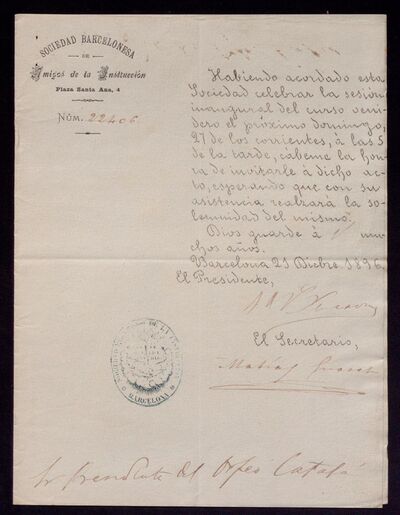 SOCIEDAD BARCELONESA
DE
Amigos de la Instrucción
Plaza Santa Ana, 4
NÚM. 22406
Habiendo acordado esta
Sociedad celebrar la sesión
inaugural del curso veni-
dero el próximo domingo,
27 de los corrientes, á las 5
de la tarde, cábeme la hon-
ra de invitarle á dicho ac-
to, esperando que con su
asistencia realzará la so-
lemnidad del mismo.
Dios guarde á V. mu-
chos años.
Barcelona 21 Dicbre. 1896.
El Presidente,
El Secretario,
Matías
BARCELONA
Sr Presidente del Orfeó Catalá